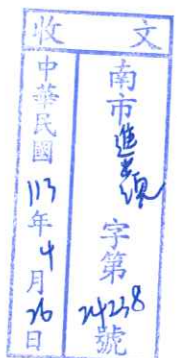 收文
南市進字第24238號
中華民國113年4月26日